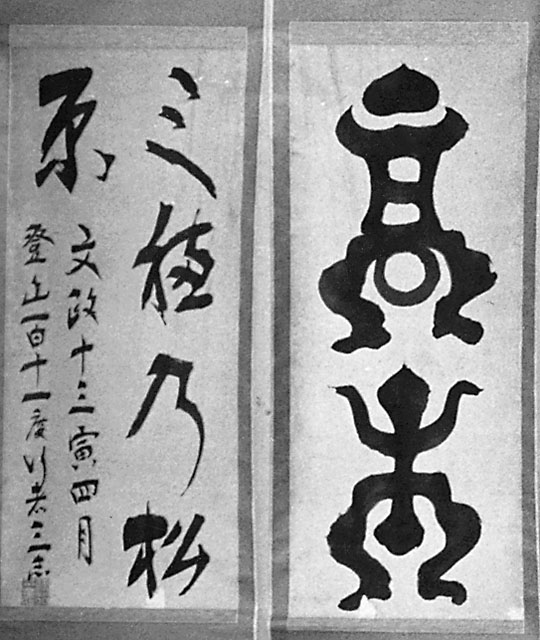 高
三穂乃松
原
文政十三寅四月
登山一百十一度行者三志